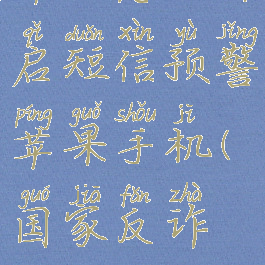 qǐ duǎn xìn yù jǐng
启短信预警
píng guǒ shǒu jī
苹果手机(
guó jiā fǎn zhà
国家反诈